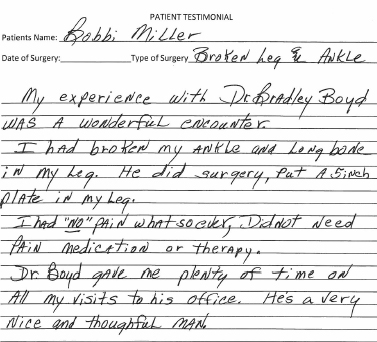 PATIENT TESTIMONIAL
Patients Name: Bobbi Miller
Date of Surgery: Type of Surgery Broken Leg & Ankle
My experience with Dr. Bradley Boyd
was a wonderful encounter.
I had broken my ankle and long bone
in my leg. He did surgery, put a 5 inch
plate in my leg.
I had "NO" pain whatsoever, Did not need
pain medication or therapy.
Dr. Boyd gave me plenty of time on
all my visits to his office. He's a very
nice and thoughtful man.